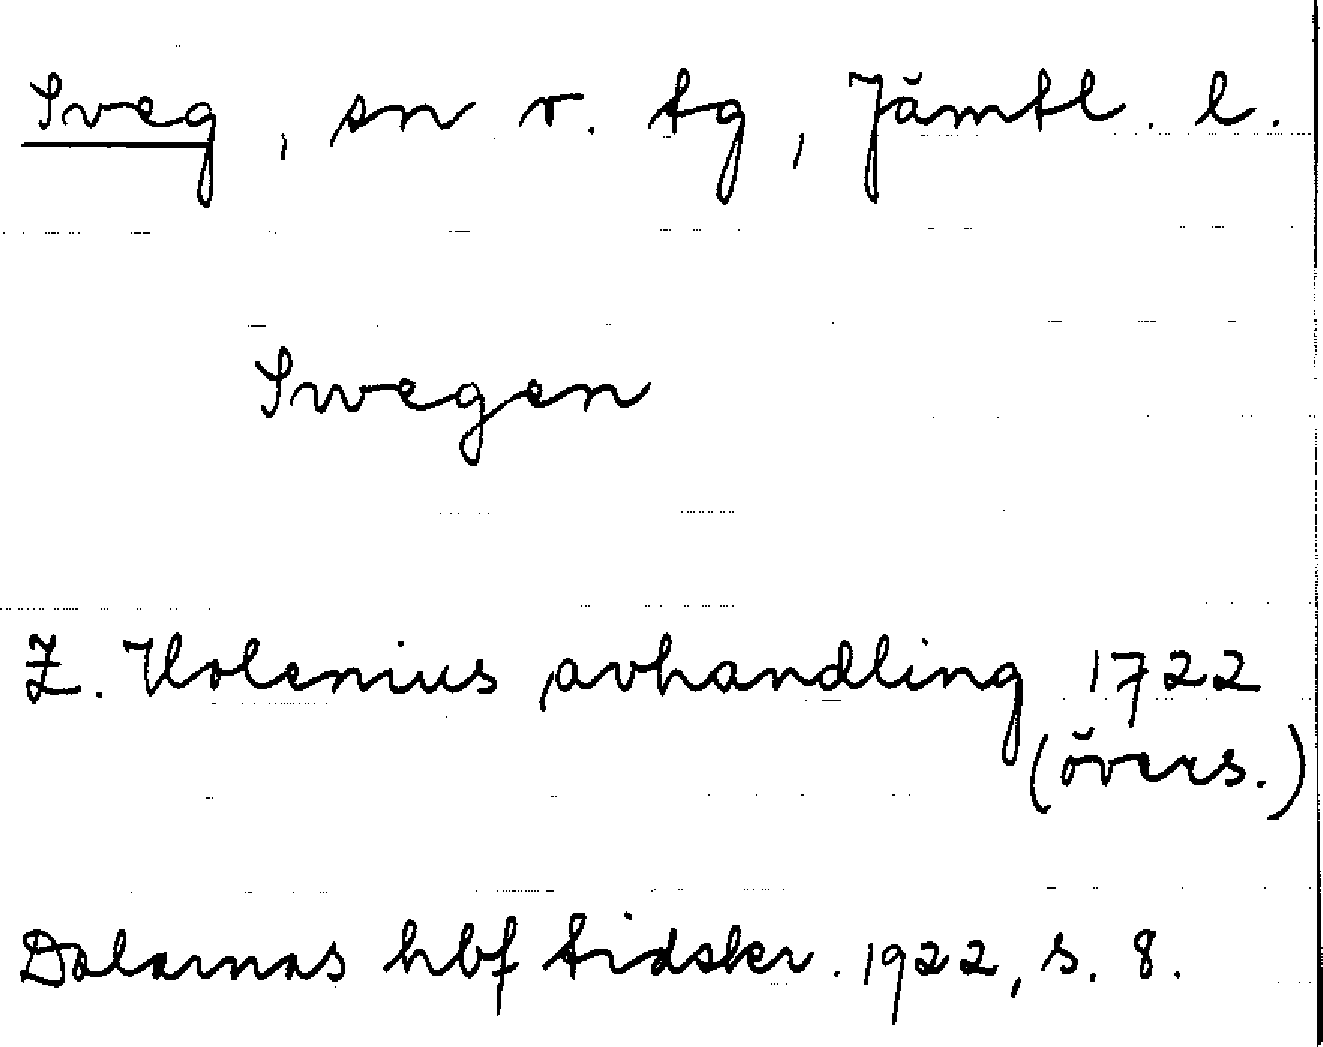 Sveg, sn o. tg, Jämtl. l.
Swegen
Z. Holenius avhandling 1722
(övers.)
Dalarnas hbf tidskr. 1922, s. 8.